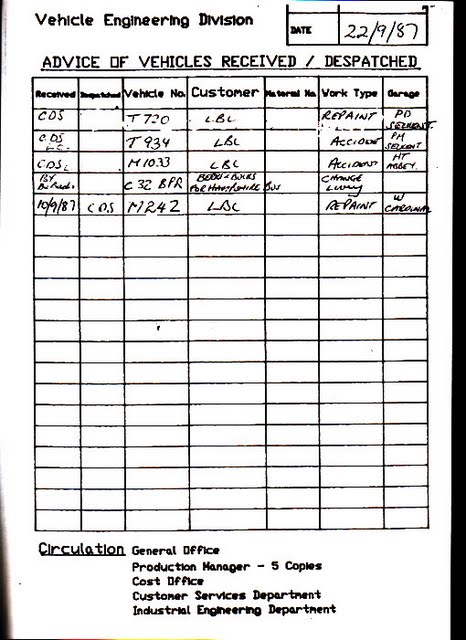 Vehicle Engineering Division
DATE 22/9/87
ADVICE OF VEHICLES RECEIVED / DESPATCHED
Received Despatched Vehicle No. Customer Material No. Work Type Garage
CDS T720 LBL REPAINT PD
CDS T934 LBL ACCIDENT PM
CDS M1033 LBL ACCIDENT HT ABBEY.
BY C32 BPR BEDS + BUCKS CHANGE
FOR HAMPSHIRE BUS Livery
10/9/87 CDS M242 LBL REPAINT W CARDINAL
Circulation General Office
Production Manager - 5 Copies
Cost Office
Customer Services Department
Industrial Engineering Department